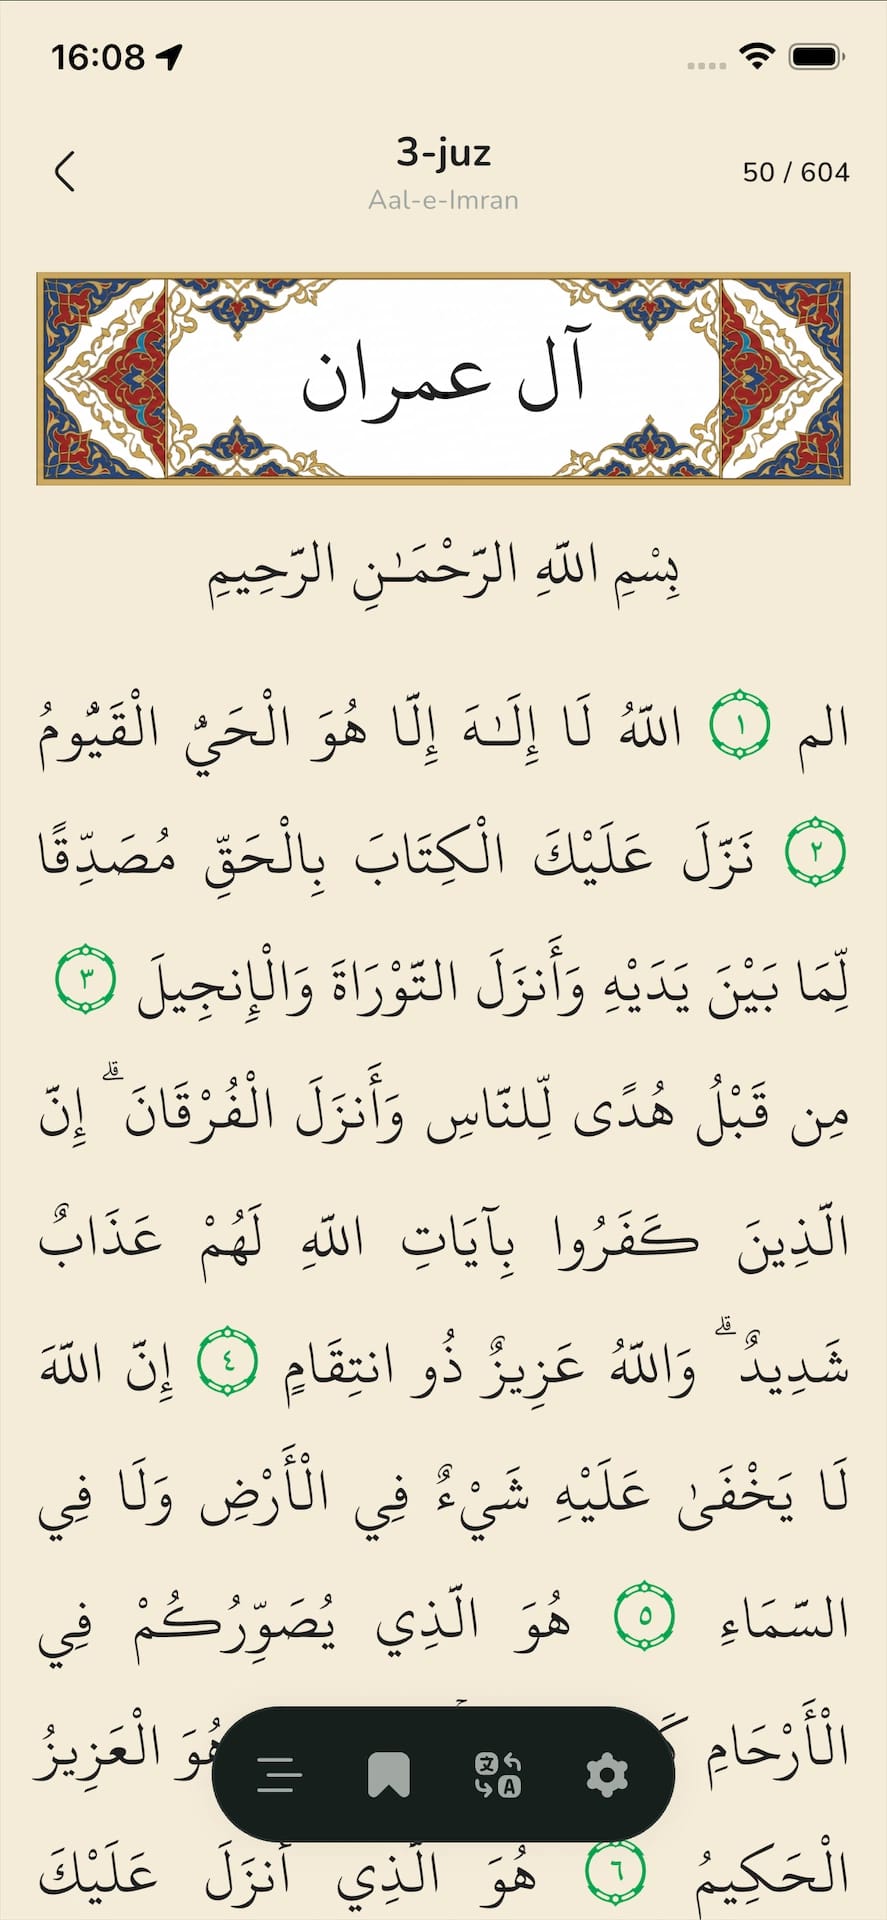 16:08
3-juz
50 / 604
Aal-e-Imran
آل عمران
بِسْمِ اللَّهِ الرَّحْمَـٰنِ الرَّحِيمِ
الم ١ اللَّهُ لَا إِلَـٰهَ إِلَّا هُوَ الْحَيُّ الْقَيُّومُ
٢ نَزَّلَ عَلَيْكَ الْكِتَابَ بِالْحَقِّ مُصَدِّقًا
لِّمَا بَيْنَ يَدَيْهِ وَأَنزَلَ التَّوْرَاةَ وَالْإِنجِيلَ ٣
مِن قَبْلُ هُدًى لِّلنَّاسِ وَأَنزَلَ الْفُرْقَانَ ۗ إِنَّ
الَّذِينَ كَفَرُوا بِآيَاتِ اللَّهِ لَهُمْ عَذَابٌ
شَدِيدٌ ۗ وَاللَّهُ عَزِيزٌ ذُو انتِقَامٍ ٤ إِنَّ اللَّهَ
لَا يَخْفَىٰ عَلَيْهِ شَيْءٌ فِي الْأَرْضِ وَلَا فِي
السَّمَاءِ ٥ هُوَ الَّذِي يُصَوِّرُكُمْ فِي
الْأَرْحَامِ هُوَ الْعَزِيزُ
الْحَكِيمُ ٦ هُوَ الَّذِي أَنزَلَ عَلَيْكَ